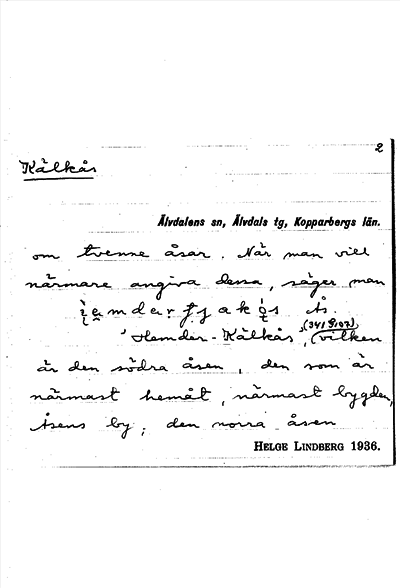 2
Kälkås
Älvdalens sn, Älvdals tg, Kopparbergs län.
om tvenne åsar. När man vill
närmare angiva dessa, säger man
Ås.
(341 9/107)
'Hemder-Kälkås', vilken
är den södra åsen, den som är
närmast hemåt, närmast bygden,
Åsens by; den norra åsen
HELGE LINDBERG 1936.